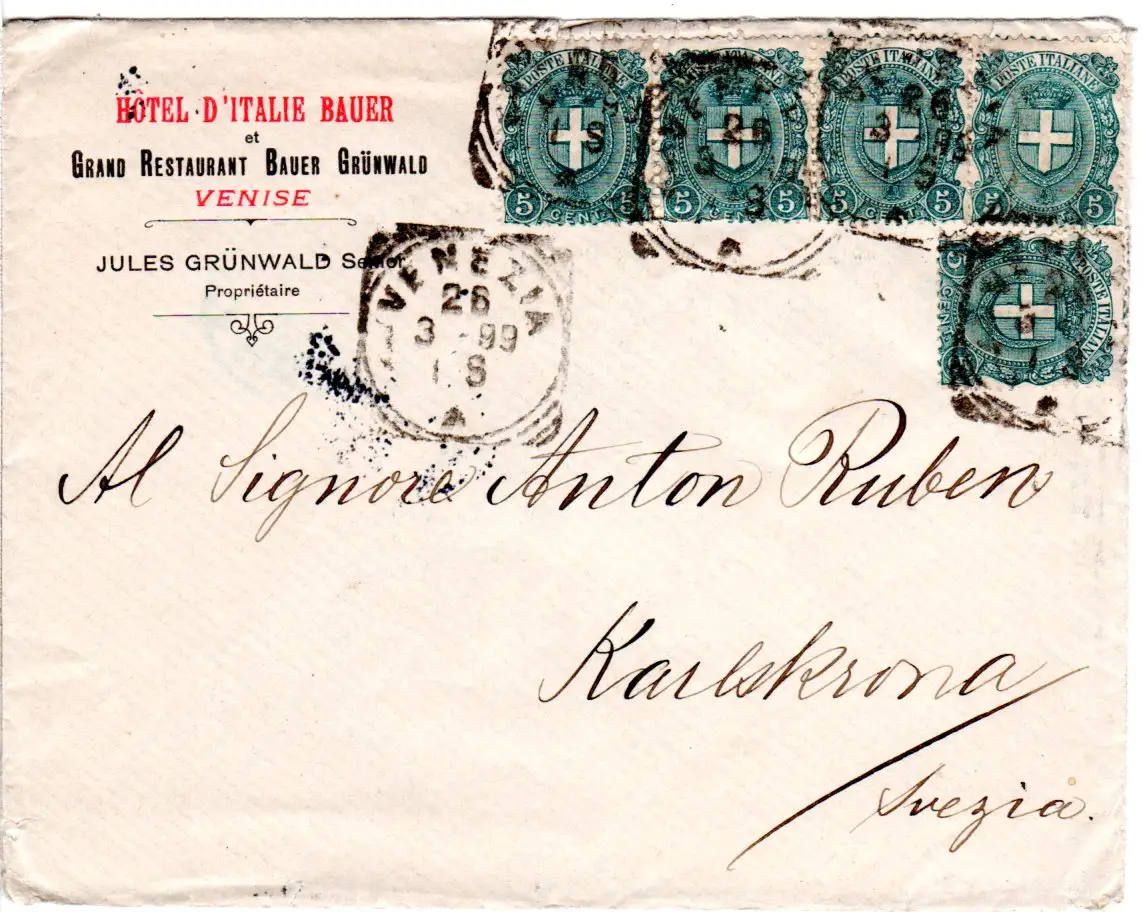 HÔTEL · D'ITALIE BAUER
et
GRAND RESTAURANT BAUER GRÜNWALD
VENISE
JULES GRÜNWALD Senior
Propriétaire
POSTE ITALIANE
5 CENT. 5
POSTE ITALIANE
5 CENT. 5
POSTE ITALIANE
5 CENT. 5
POSTE ITALIANE
5 CENT. 5
POSTE ITALIANE
VENEZIA
26
3 - 99
1 S
Al Signore Anton Ruben
Karlskrona
Svezia.